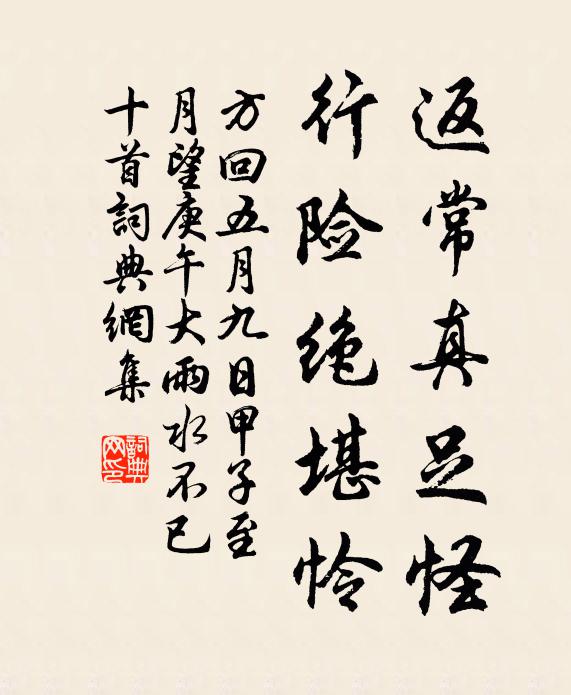 返常真足怪
行险绝堪怜
方回五月九日甲子至
月望庚午大雨水不已
十首詞典網集
詞典網印